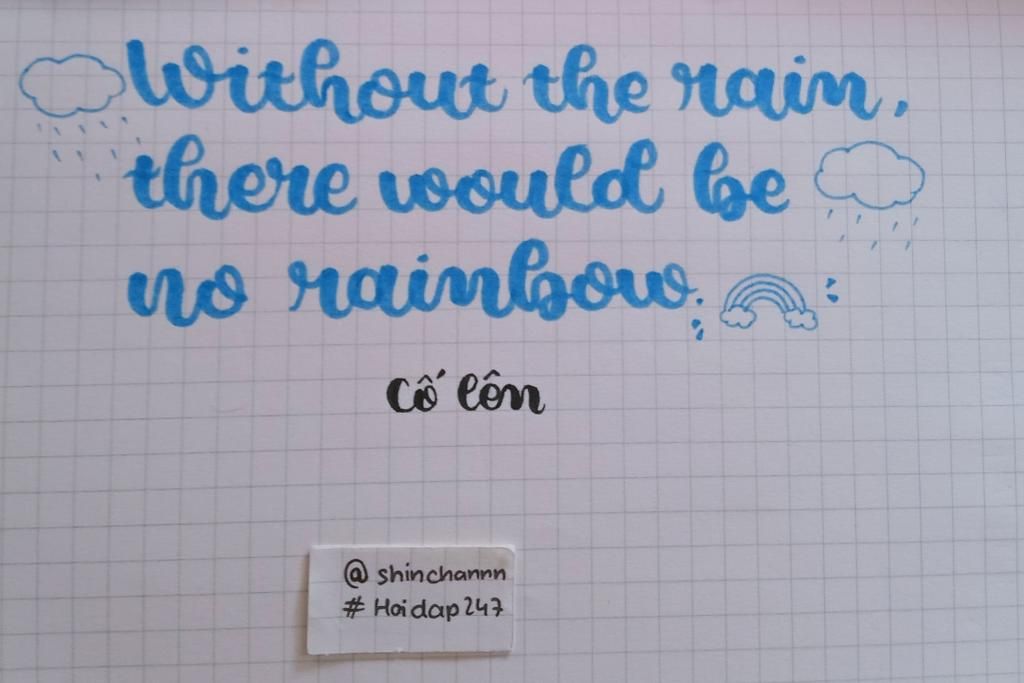 Without the rain,
there would be
no rainbow.
Cố lên
@ shinchannn
# Hoidap247